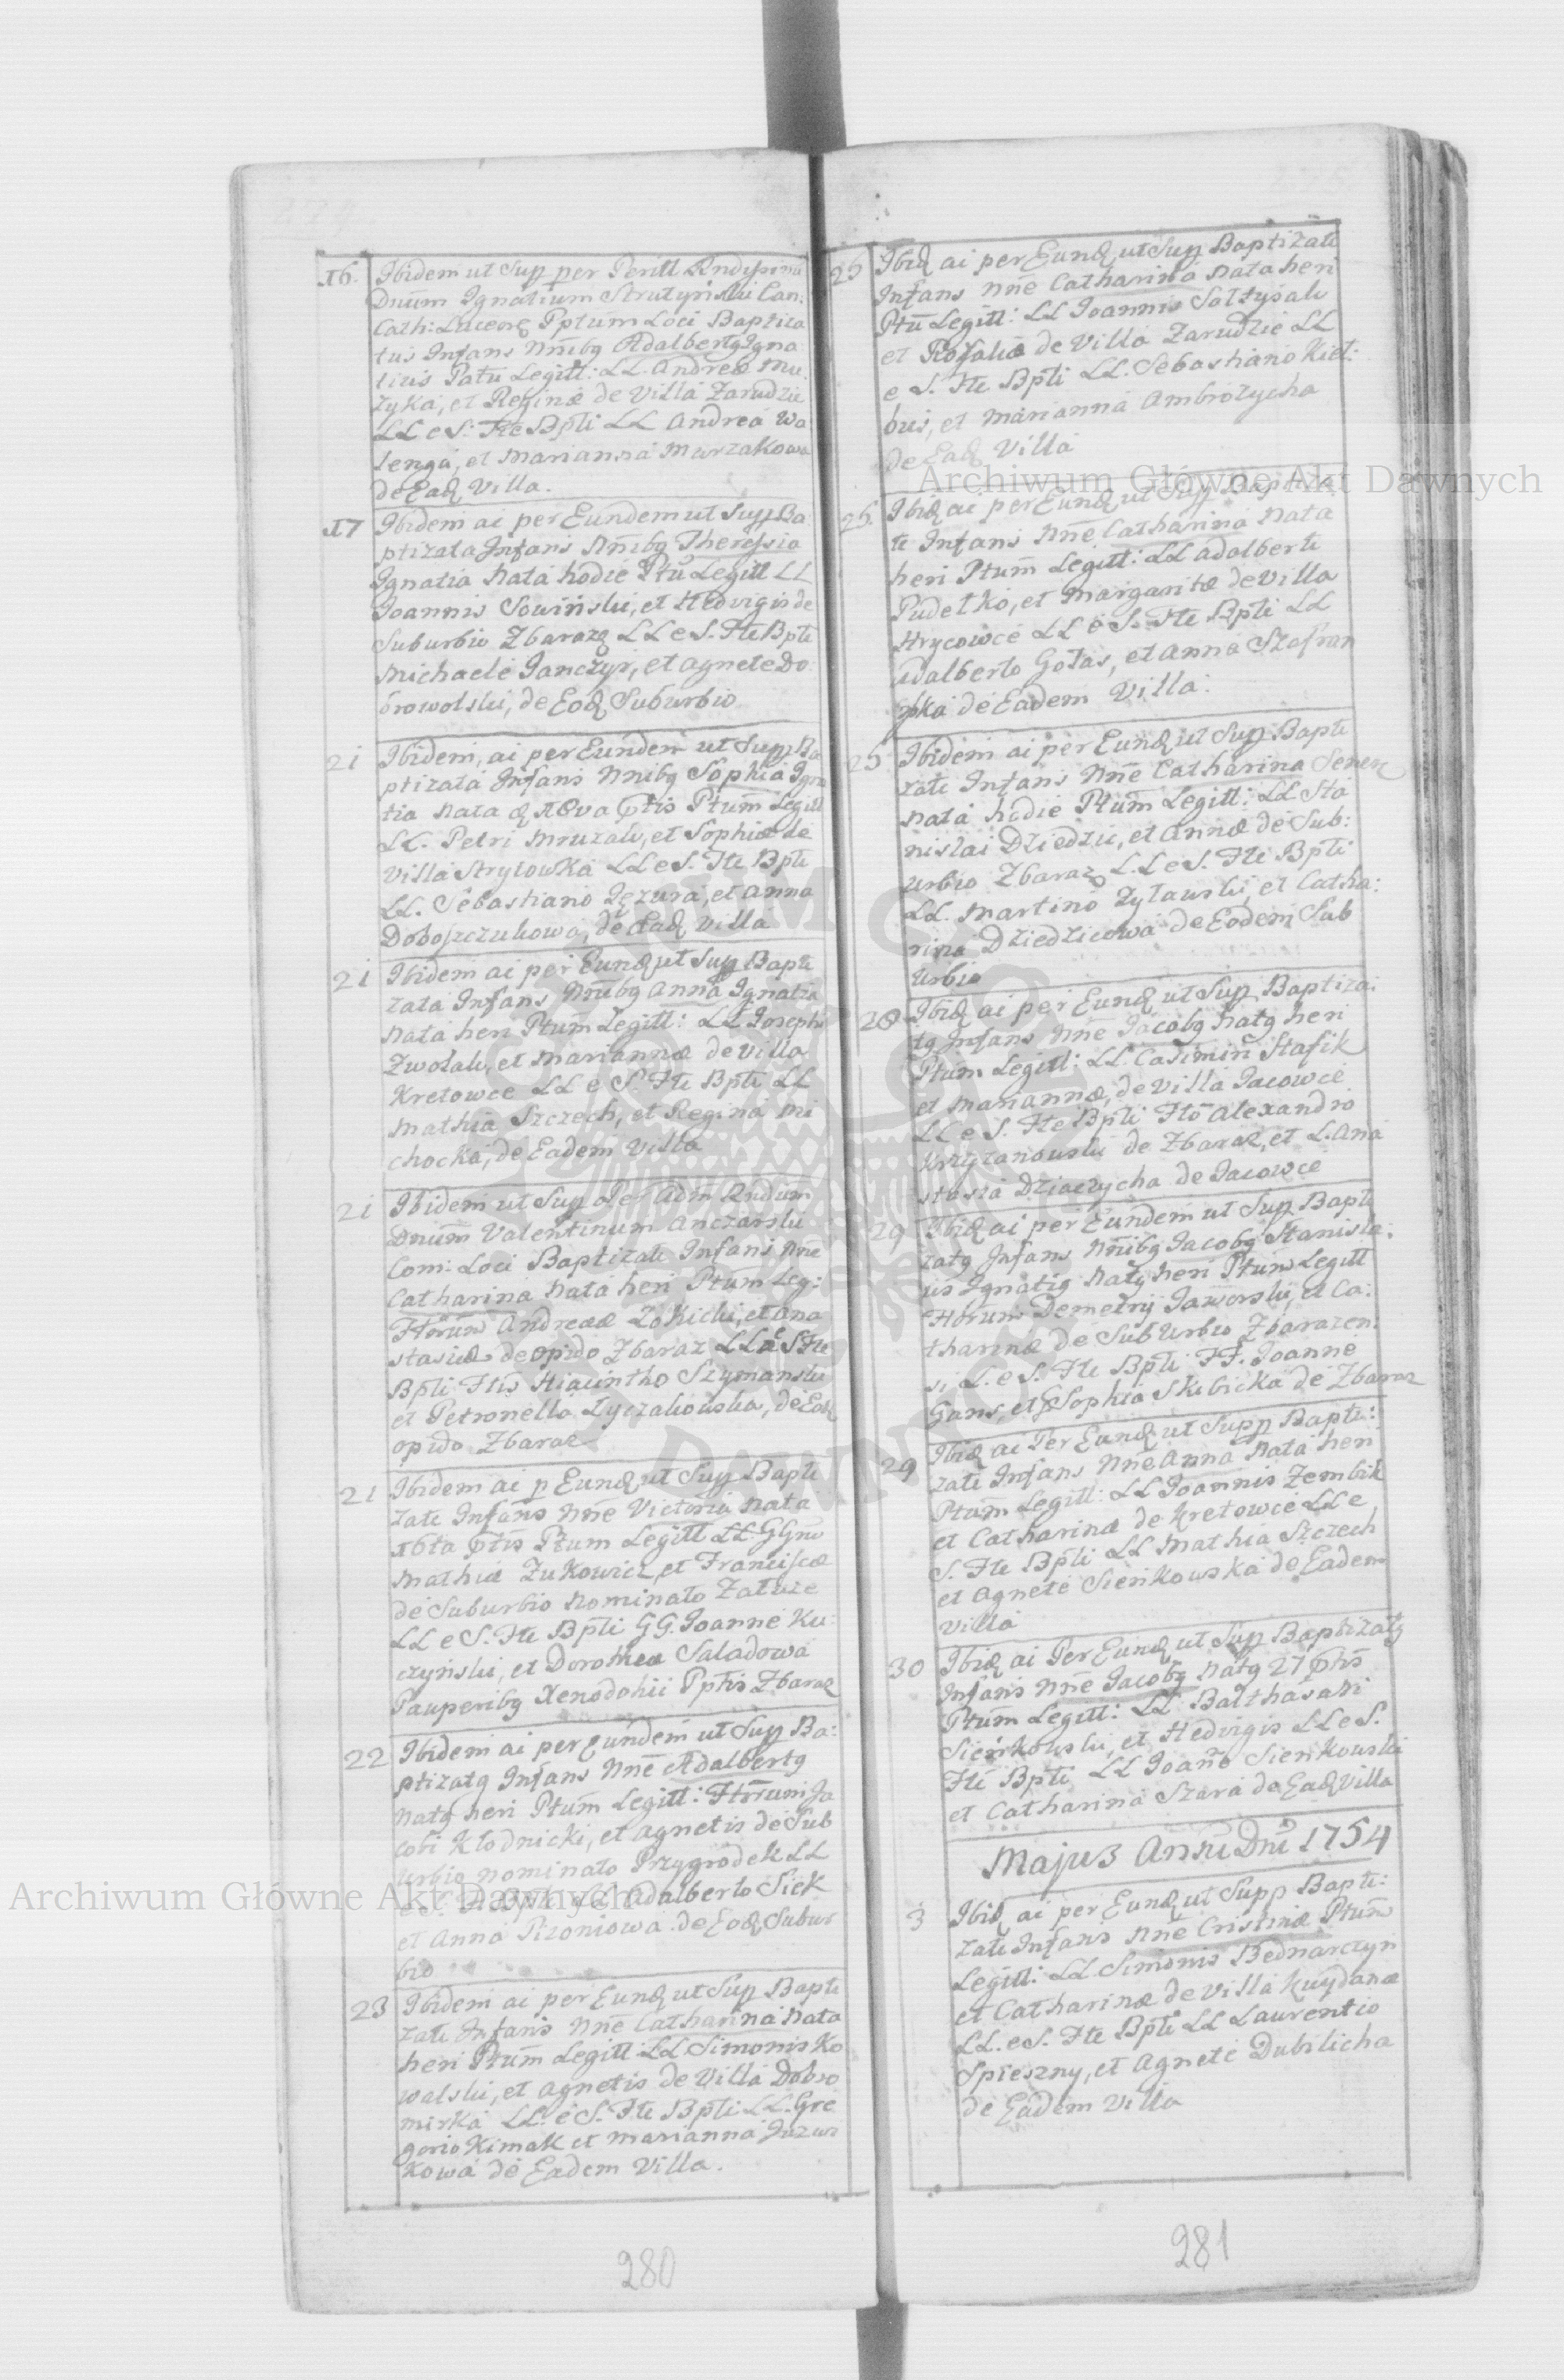 16. Ibidem ut Supp per Perill Rndissimu
Dnum Ignatium Strutyński Can:
Cath: Luceor Pptum Loci Baptiza
tus Infans Nnibg Adalbertg Igna
tius Patu Legitt: LL Andreæ Mu
zyka, et Reginæ de Villa Zarudzie
LL e S: Fte Bpti LL Andrea Wa
lenga, et Marianna Murzakowa
de Eadq Villa.
17 Ibidem ai per Eundem ut Supp Ba
ptizata Infans Nnibg Theressia
Ignatia Nata hodie Ptu Legitt LL
Joannis Sowiński, et Hedvigis de
Suburbio Zbaraz LL e S. Fte Bpti
Michaele Janczyi, et Agnete Do
browolski, de Eodq Suburbio
21 Ibidem, ai per Eundem ut Supp Ba
ptizata Infans Nnibg Sophia Igna
tia Nata ptis Ptum Legitt
LL. Petri Mruzak, et Sophiæ de
Villa Stryiowka LL e S. Fte Bpti
LL. Sebastiano Jęzura, et Anna
Doboszczukowa, de Eadq Villa
21 Ibidem ai per Eundq ut Supp Bapti
zata Infans Nnibg Anna Ignatia
Nata heri Ptum Legitt: LL Josephi
Zwolak, et Mariannæ de Villa
Kretowce LL e S. Fte Bpti LL
Mathia Szczech, et Regina Mi
chocka, de Eadem Villa
21 Ibidem ut Supp Per Adm Rndum
Dnum Valentinum Anczarski
Com: Loci Baptizata Infans Nne
Catharina Nata heri Ptum Leg:
Ftorum Andreæ Zokicki, et Ana
stasiæ de opido Zbaraz LL e S Fte
Bpti Ftis Hiacintho Szymanski
et Petronella Łyczakowska, de Eodq
opido Zbaraz
21 Ibidem ai p Eundq ut Supp Bapti
zata Infans Nne Victoria Nata
16ta ptis Ptum Legitt LL GGnu
Mathiæ Zukowicz, et Franciscæ
de Suburbio Nominato Zaluze
LL e S. Fte Bpti GG. Joanne Ku
czyński, et Dorothea Saladowa
Pauperibg Xenodohii Pptis Zbaraz
22 Ibidem ai per Eundem ut Supp Ba:
ptizatg Infans Nne Adalbertg
Natg heri Ptum Legitt: Ftorum Ja
cobi Kłodnicki, et Agnetis de Sub
urbio Nominato Przygrodek LL
e S. Fte Bpti LL Adalberto Siek
et Anna Pizoniowa de Eodq Subur
bio
23 Ibidem ai per Eundq ut Supp Bapti
zata Infans Nne Catharina Nata
heri Ptum Legitt LL Simonis Ko
walski, et Agnetis de Villa Dobro
mirka LL. e S. Fte Bpti LL. Gre
gorio Kimak et Marianna Juzwi
kowa de Eadem Villa.
280
25 Ibidq ai per Eundq ut Supp Baptizata
Infans Nne Catharina Nata heri
Ptu Legitt: LL Joannis Sołtysak
et Rosaliæ de Villa Zarudzie LL
e S. Fte Bpti LL. Sebastiano Kieł:
bus, et Marianna Ambrozycha
de Eadq Villa
25 Ibidq ai per Eundq ut Supp Baptiza
ta Infans Nne Catharina Nata
heri Ptum Legitt: LL Adalberti
Pudełko, et Margaritæ de Villa
Hrycowce LL e S. Fte Bpti LL
Adalberto Gołas, et Anna Szafran
ska de Eadem Villa.
25 Ibidem ai per Eundq ut Supp Bapti
zata Infans Nne Catharina Senen
Nata hodie Ptum Legitt: LL Sta
nislai Dziedzic, et Annæ de Sub:
urbio Zbaraz LL e S. Fte Bpti
LL. Martino Zyławski, et Catha:
rina Dziedzicowa de Eodem Sub
urbio
28 Ibidq ai per Eundq ut Supp Baptiza:
tg Infans Nne Jacobg Natg heri
Ptum Legitt: LL Casimiri Stasik
et Mariannæ, de Villa Jacowce
LL e S. Fte Bpti Fto Alexandro
Krzyzanowski de Zbaraz, et L. Ana
stasia Dziaczycha de Jacowce
29 Ibidq ai per Eundem ut Supp Bapti
zatg Infans Nnibg Jacobg Stanisla:
us Ignatig Natg heri Ptum Legitt
Ftorum Demetrij Jaworski, et Ca:
tharinæ de Suburbio Zbarazen:
si L. e S. Fte Bpti FF. Joanne
Gans, et Sophia Skibicka de Zbaraz
29 Ibidq ai Per Eundq ut Supp Bapti:
zata Infans Nne Anna Nata heri
Ptum Legitt: LL Joannis Zembik
et Catharinæ de Kretowce LL e
S. Fte Bpti LL Mathia Szczech
et Agnete Sieńkowska de Eadem
Villa
30 Ibidq ai Per Eundq ut Supp Baptizatg
Infans Nne Jacobg Natg 27 ptis
Ptum Legitt: LL Balthasari
Sieńkowski, et Hedvigis LL e S.
Fte Bpti LL Joane Sieńkowski
et Catharina Szara de Eadq Villa
Majus Anni Dni 1754
3 Ibidq ai per Eundq ut Supp Bapti:
zata Infans Nne Cristina Ptum
Legitt: LL Simonis Bednarczyn
et Catharinæ de Villa Kuydanæ
LL. e S. Fte Bpti LL Laurentio
Spieszny, et Agnete Dubilicha
de Eadem Villa
281
Archiwum Główne Akt Dawnych
Archiwum Główne Akt Dawnych